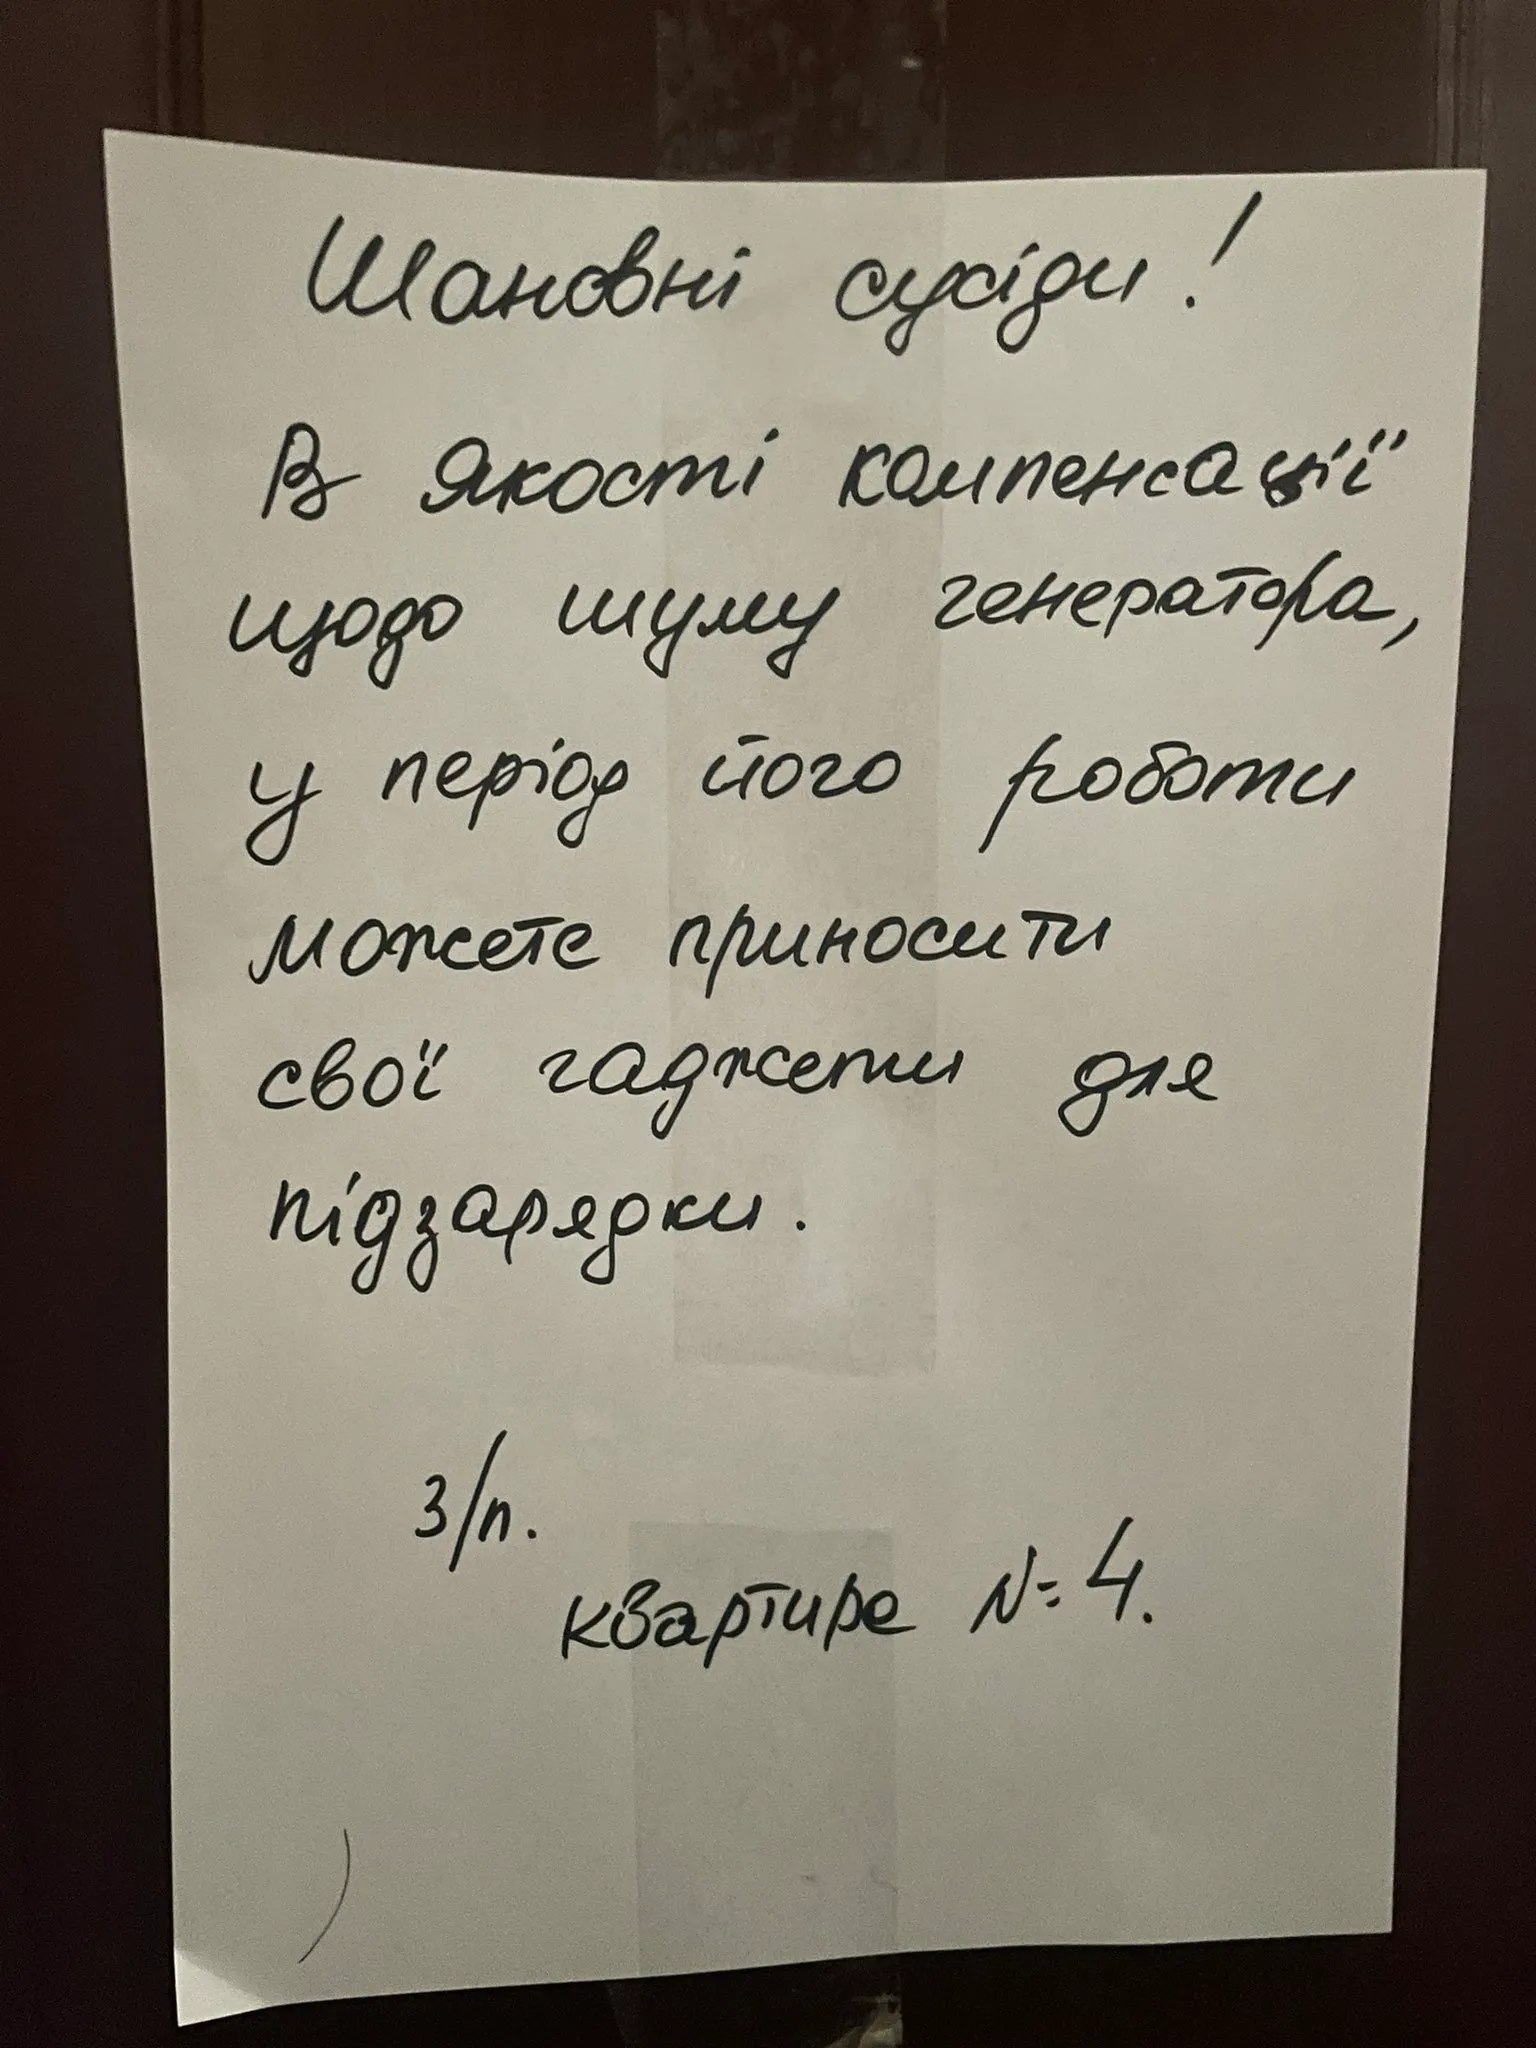 Шановні сусіди!
В якості компенсації
щодо шуму генератора,
у період його роботи
можете приносити
свої гаджети для
підзарядки.
З/п.
квартира №4.